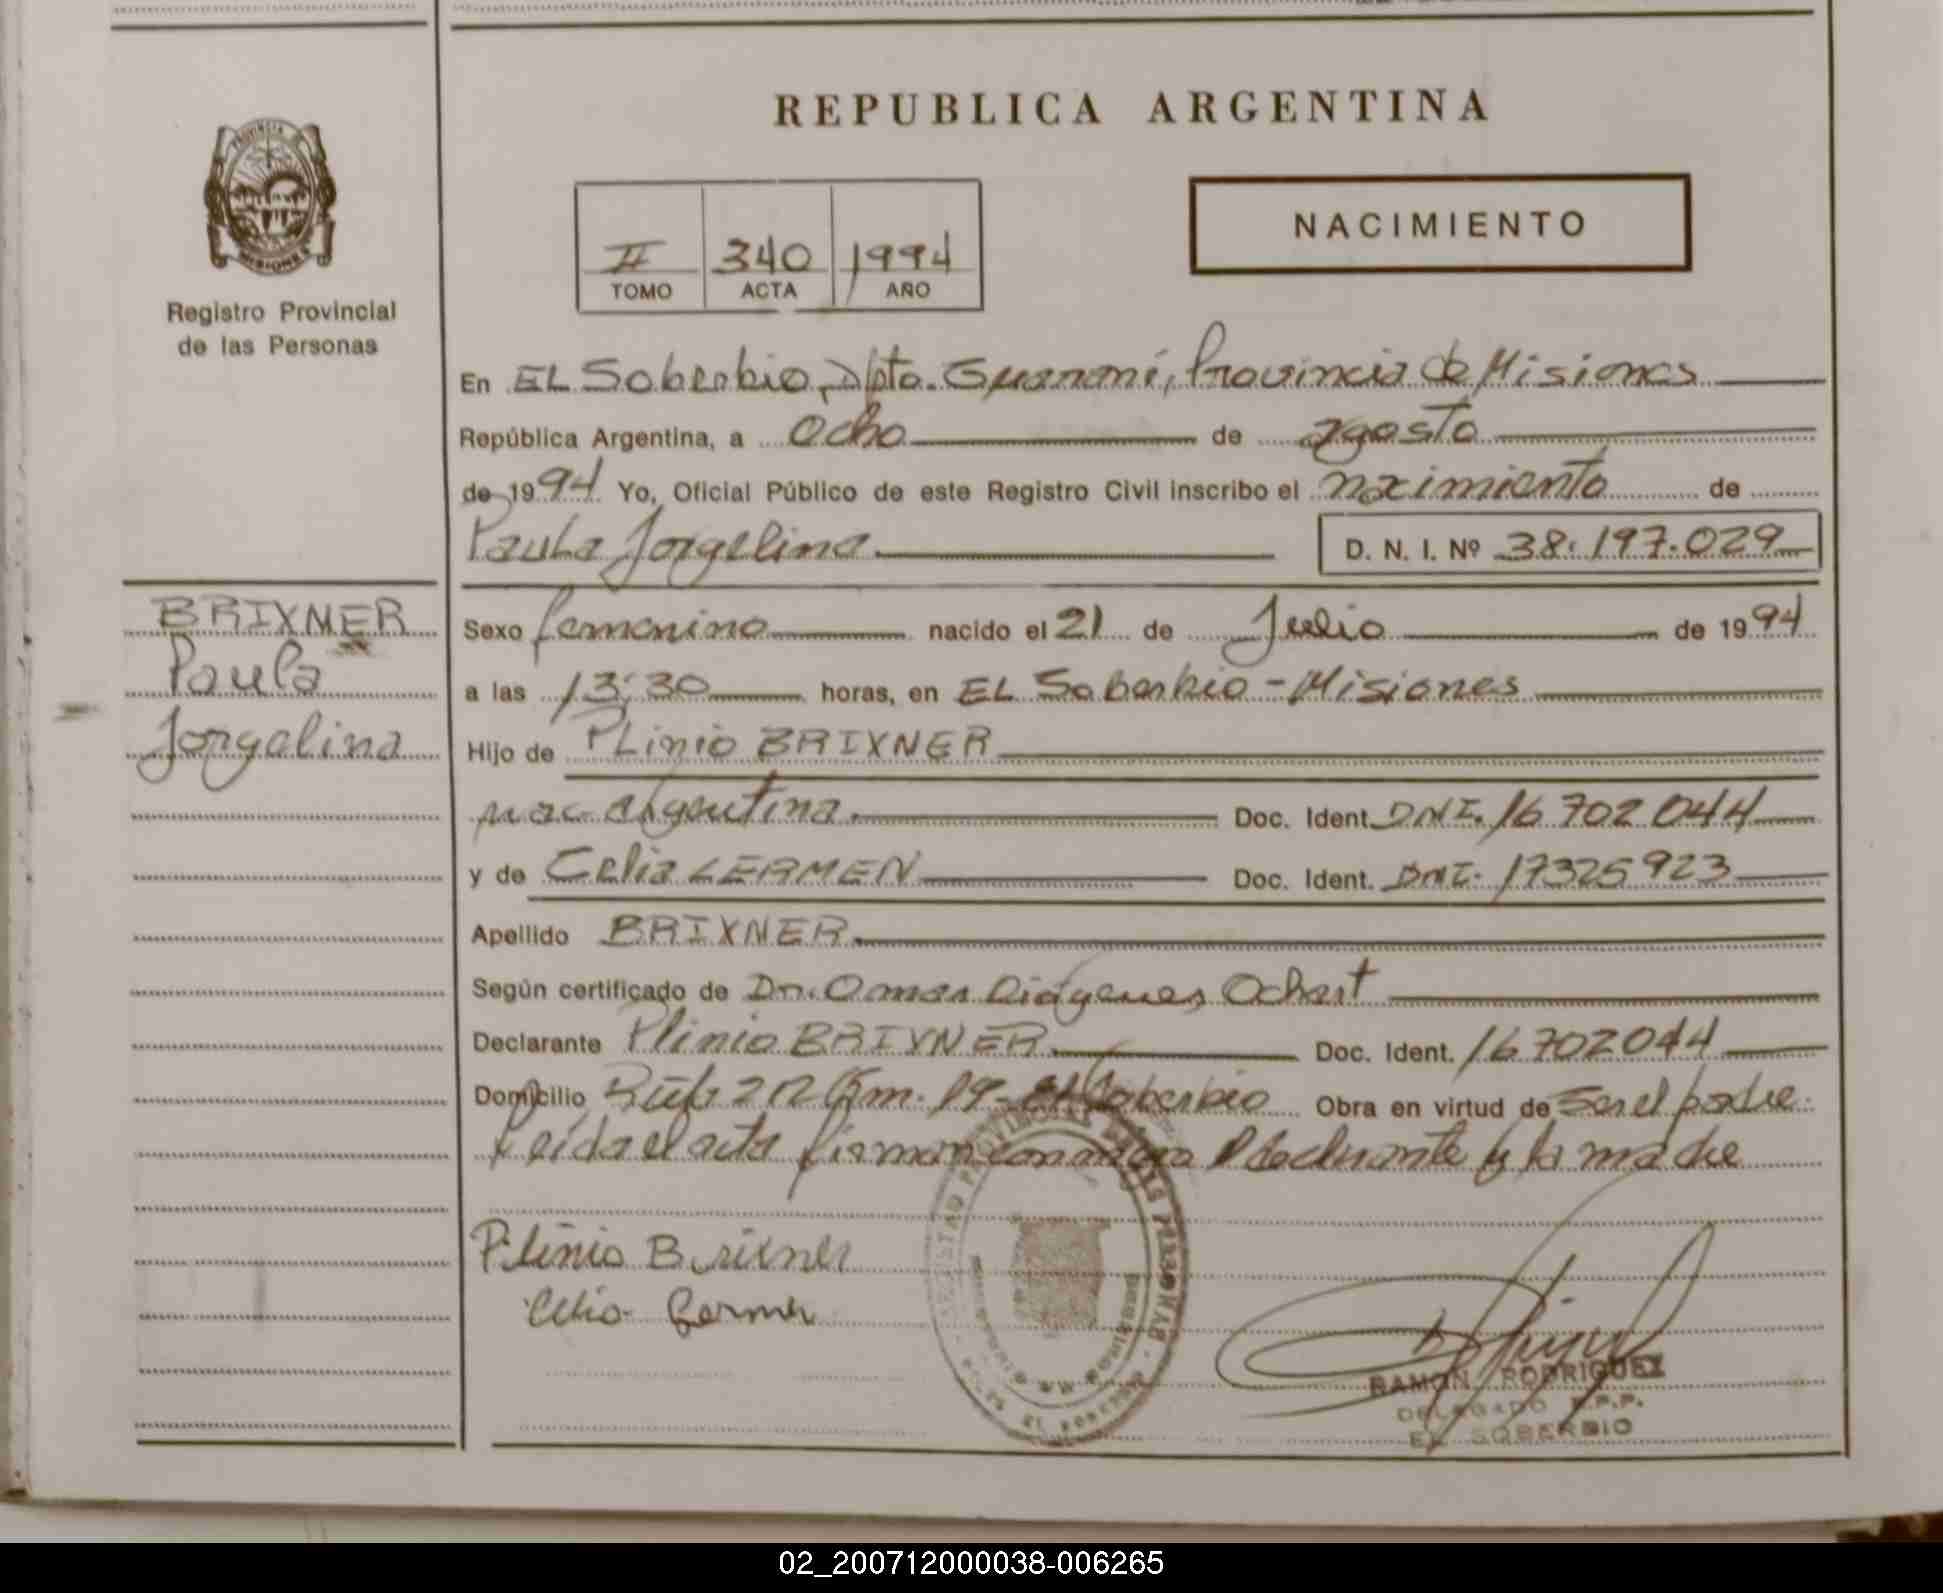 REPUBLICA ARGENTINA
PROVINCIA DE
MISIONES
Registro Provincial
de las Personas
II 340 1994
TOMO ACTA AÑO
NACIMIENTO
En EL Soberbio, Dpto. Guaraní, Provincia de Misiones
República Argentina, a ocho de agosto
de 1994 Yo, Oficial Público de este Registro Civil inscribo el nacimiento de
Paula Jorgelina D. N. I. Nº 38.197.029
BRIXNER
Paula
Jorgelina
Sexo femenino nacido el 21 de Julio de 1994
a las 13;30 horas, en EL Soberbio - Misiones
Hijo de PLinio BRIXNER
nac. argentina. Doc. Ident. DNI. 16 702 044
y de Celia LERMEN Doc. Ident. DNI. 17325923
Apellido BRIXNER
Según certificado de Dr. Omar Diógenes Ochart
Declarante Plinio BRIXNER Doc. Ident. 16702044
Domicilio Ruta 212 Km. 19 - El Soberbio Obra en virtud de ser el padre.
Leída el acta firman conmigo el declarante y la madre
Plinio Brixner
Celia Lermen
RAMON RODRIGUEZ
DELEGADO R.P.P.
EL SOBERBIO
02_200712000038-006265